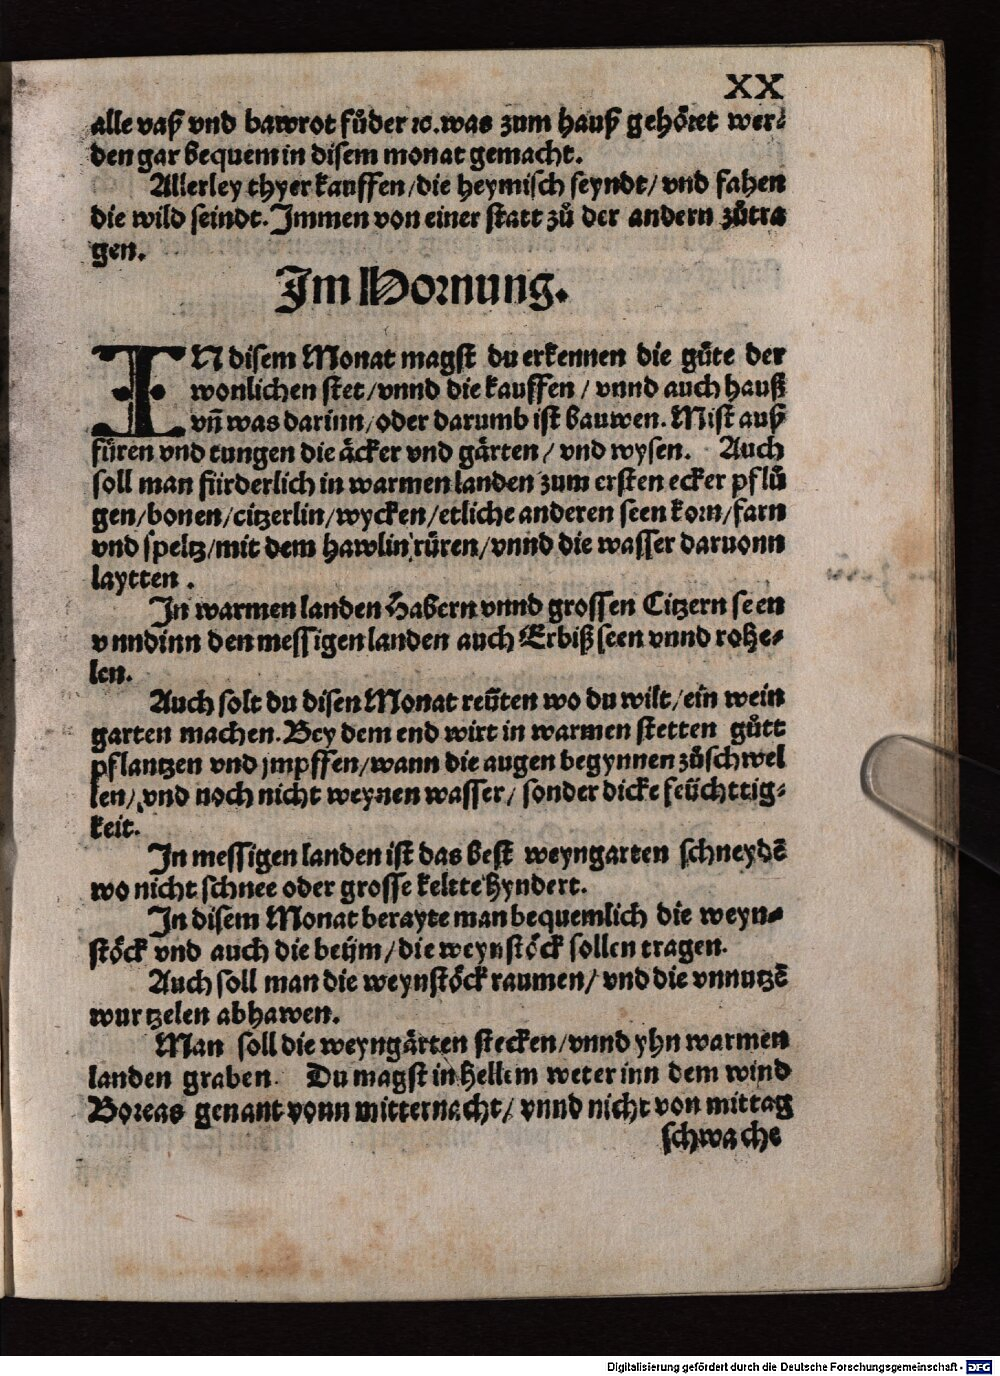 XX
alle vaß vnd bawrot fůder ꝛc. was zum hauß gehöꝛet wer⸗
den gar bequem in disem monat gemacht.
Allerley thyer kauffen/die heymisch seyndt/ vnd fahen
die wild seindt. Immen von einer statt zů der andern zůtra
gen.
Im Hoꝛnung.
IN disem Monat magst du erkennen die gůte der
wonlichen stet/vnnd die kauffen / vnnd auch hauß
vñ was darinn/oder darumb ist bauwen. Mist auß
fůren vnd tungen die äcker vnd gärten / vnd wysen. Auch
soll man fürderlich in warmen landen zum ersten ecker pflů
gen/bonen/citzerlin/wycken/etliche anderen seen koꝛn/farn
vnd speltz/mit dem hawlin růren/vnnd die wasser daruonn
laytten .
In warmen landen Habern vnnd grossen Citzern seen
vnndinn den messigen landen auch Erbiß seen vnnd rohe⸗
len.
Auch solt du disen Monat reüten wo du wilt/ein wein
garten machen. Bey dem end wirt in warmen stetten gůtt
pflantzen vnd jmpffen/wann die augen begynnen zůschwel
len/vnd noch nicht weynen wasser/ sonder dicke feüchttig⸗
keit.
In messigen landen ist das best weyngarten schneydē
wo nicht schnee oder grosse keltte hyndert.
In disem Monat berayte man bequemlich die weyn⸗
stöck vnd auch die beüm/die weynstöck sollen tragen.
Auch soll man die weynstöck raumen/ vnd die vnnutzē
wurtzelen abhawen.
Man soll die weyngärten stecken/vnnd yhn warmen
landen graben. Du magst in hellem weter inn dem wind
Boꝛeas genant vonn mitternacht/ vnnd nicht von mittag
schwache
Digitalisierung gefördert durch die Deutsche Forschungsgemeinschaft - DFG